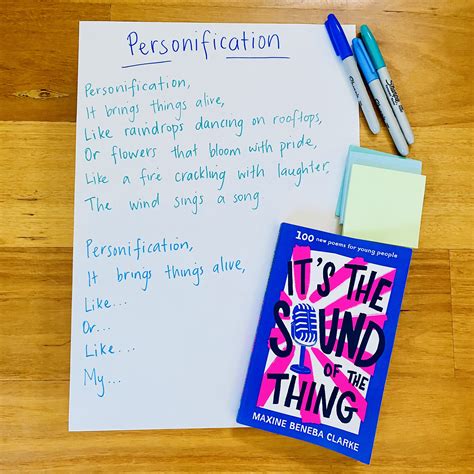 Personification
Personification,
It brings things alive,
Like raindrops dancing on rooftops,
Or flowers that bloom with pride,
Like a fire crackling with laughter,
The wind sings a song
Personification,
It brings things alive,
Like...
Or...
Like...
My...
Sharpie
100 new poems for young people
IT'S THE
SOUND
OF THE
THING
MAXINE BENEBA CLARKE